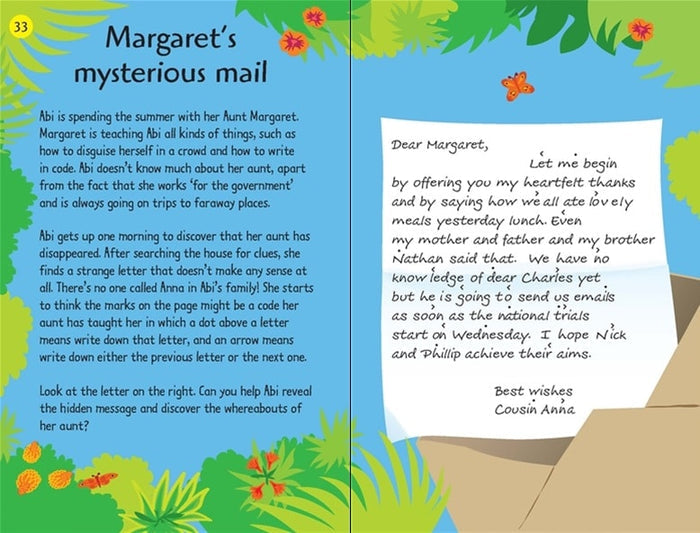 33
Margaret's
mysterious mail
Abi is spending the summer with her Aunt Margaret.
Margaret is teaching Abi all kinds of things, such as
how to disguise herself in a crowd and how to write
in code. Abi doesn't know much about her aunt, apart
from the fact that she works 'for the government'
and is always going on trips to faraway places.
Abi gets up one morning to discover that her aunt has
disappeared. After searching the house for clues, she
finds a strange letter that doesn't make any sense at
all. There's no one called Anna in Abi's family! She starts
to think the marks on the page might be a code her
aunt has taught her in which a dot above a letter
means write down that letter, and an arrow means
write down either the previous letter or the next one.
Look at the letter on the right. Can you help Abi reveal
the hidden message and discover the whereabouts of
her aunt?
Dear Margaret,
Let me begin
by offering you my heartfelt thanks
and by saying how we all ate lovely
meals yesterday lunch. Even
my mother and father and my brother
Nathan said that. We have no
knowledge of dear Charles yet
but he is going to send us emails
as soon as the national trials
start on Wednesday. I hope Nick
and Phillip achieve their aims.
Best wishes
Cousin Anna